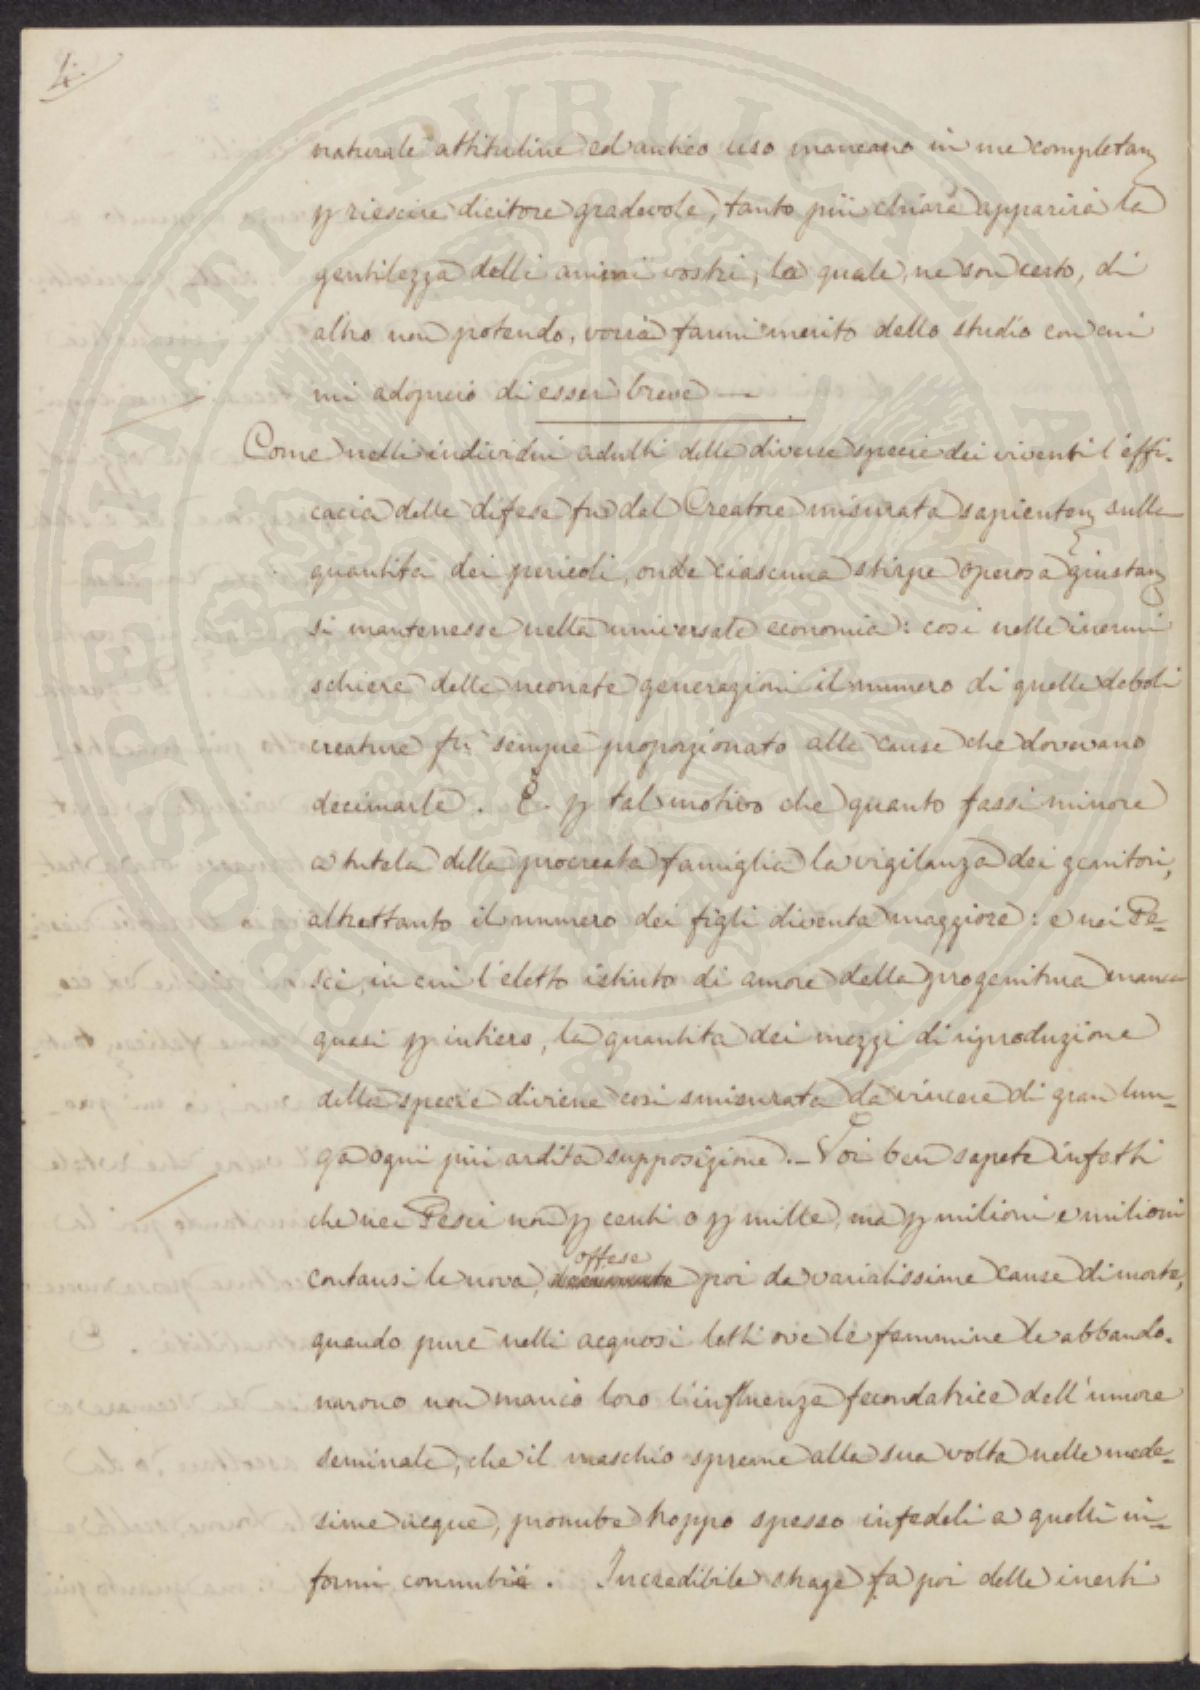 4.
naturale attitudine ed antico uso mancano in me completam
p riescire dicitore gradevole, tanto più chiara apparirà la
gentilezza delli animi vostri, la quale, ne son certo, di
altro non potendo, vorrà farmi merito dello studio con cui
mi adoprerò di esser breve —
Come nelli individui adulti delle diverse specie dei viventi l'effi-
cacia delle difese fu dal Creatore misurata sapientem sulla
quantità dei pericoli, onde ciascuna stirpe operosa giustam
si mantenesse nella universale economia: così nelle inermi
schiere delle neonate generazioni il numero di quelle deboli
creature fu sempre proporzionato alle cause che dovevano
decimarle. È p tal motivo che quanto fassi minore
a tutela della procreata famiglia la vigilanza dei genitori,
altrettanto il numero dei figli diventa maggiore: e nei Pe-
sci, in cui l'eletto istinto di amore della progenitura manca
quasi p intiero, la quantità dei mezzi di riproduzione
della specie diviene così smisurata da vincere di gran lun-
ga ogni più ardita supposizione. — Voi ben sapete infatti
che nei Pesci non p centi o p mille, ma p milioni e milioni
contansi le uova, offese poi da variatissime cause di morte,
quando pure nelli acquosi letti ove le femmine le abbando-
narono non mancò loro l'influenza fecondatrice dell'umore
seminale, che il maschio spreme alla sua volta nelle mede-
sime acque, pronube troppo spesso infedeli a quelli in-
formi connubii. Incredibile strage fa poi delle inerti